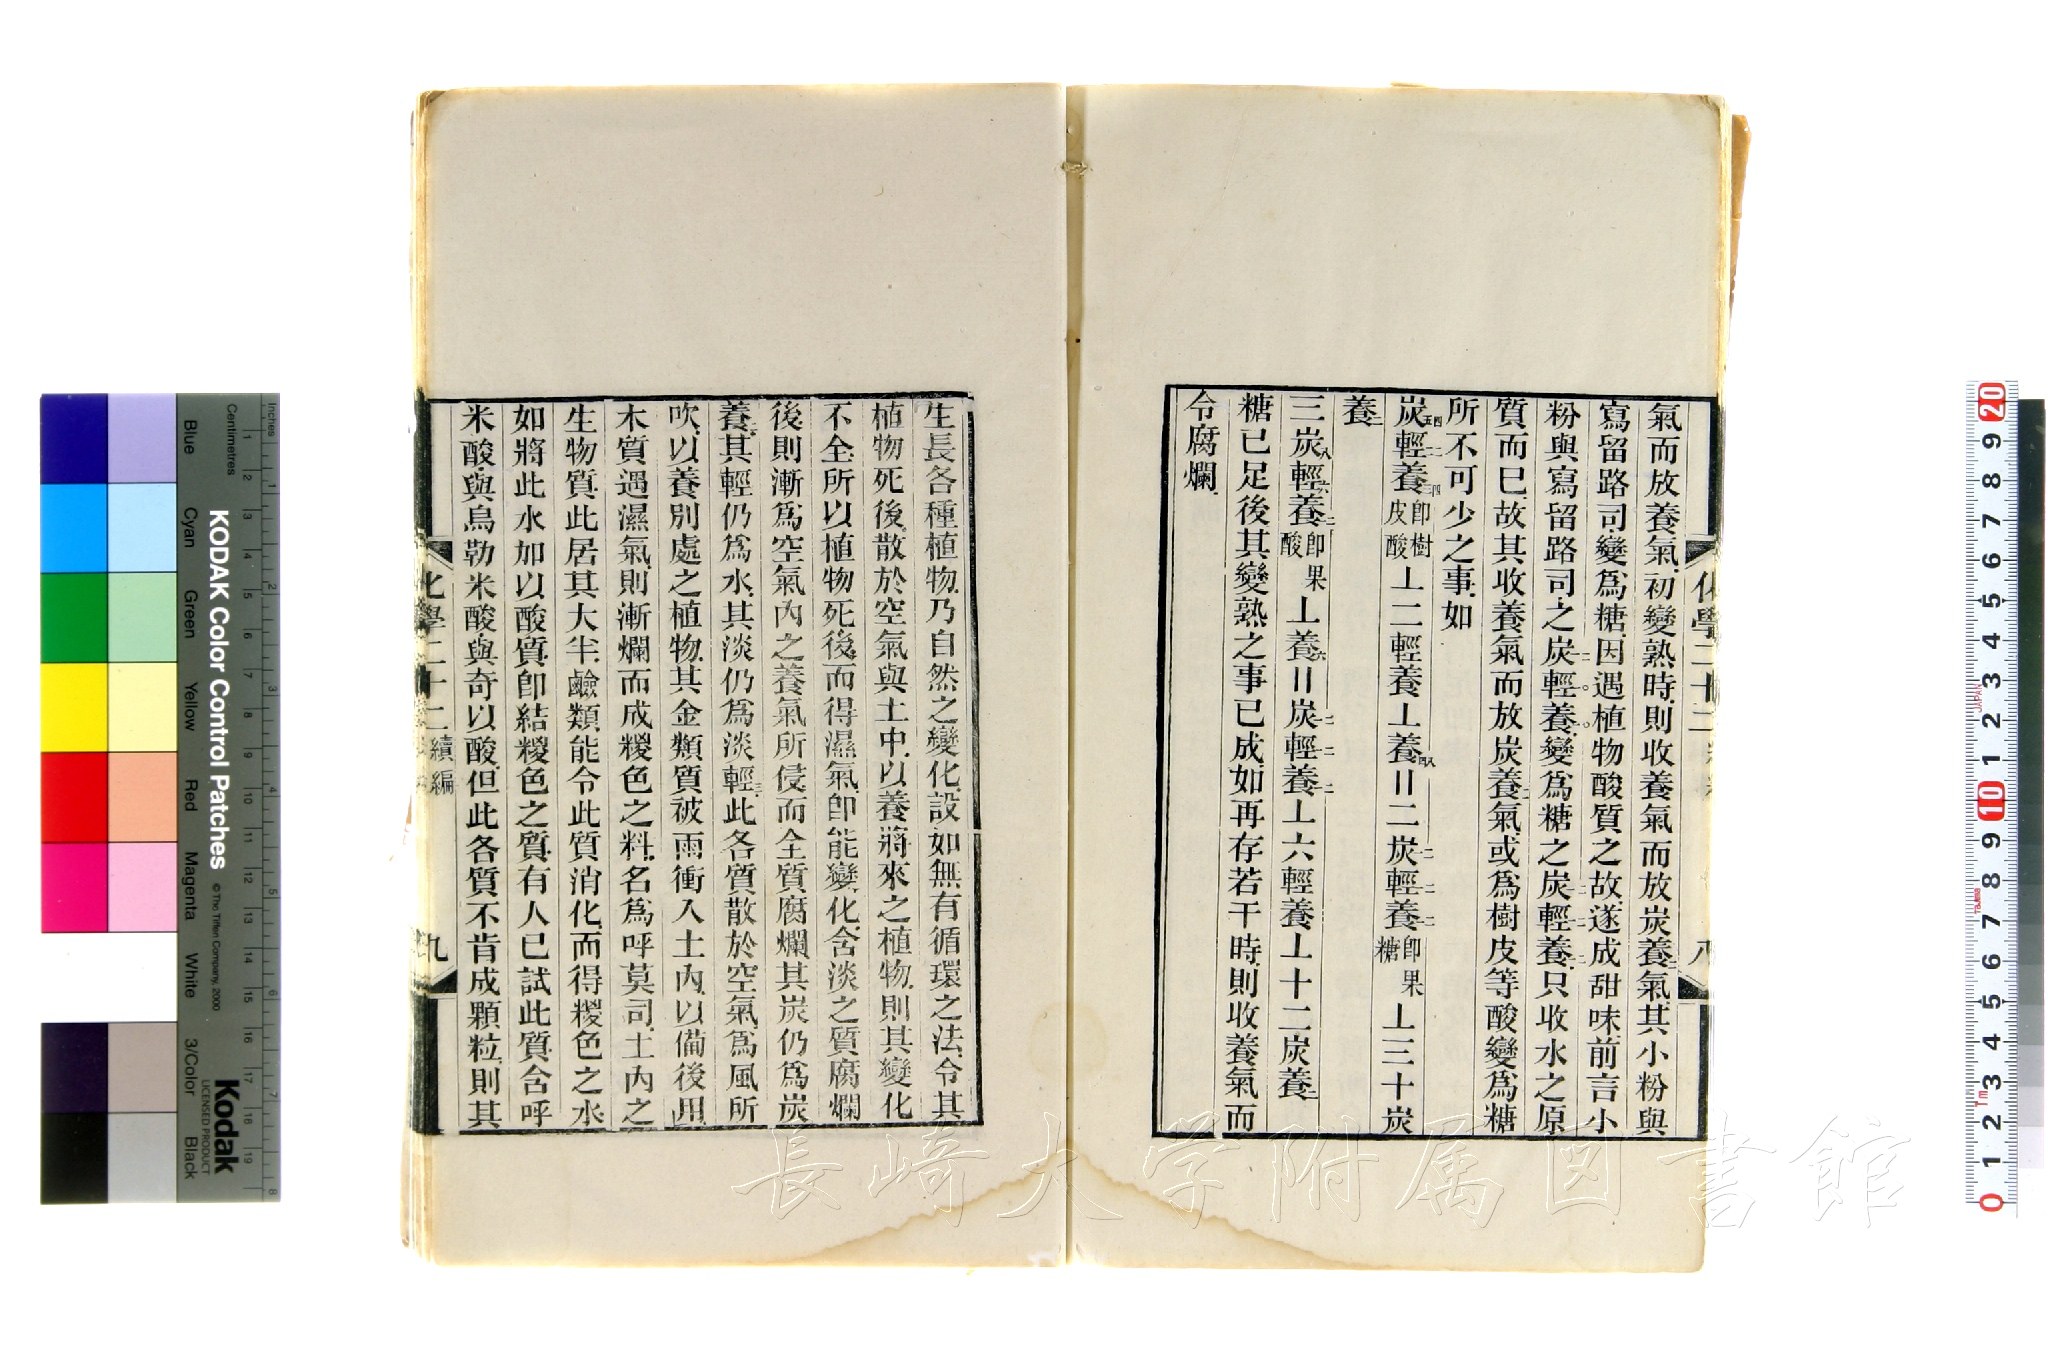 氣而放養氣初變熟時則收養氣而放炭養二氣其小粉與
寫留路司變爲糖因遇植物酸質之故遂成甜味前言小
粉與寫留路司之炭輕養變爲糖之炭輕養只收水之原
質而已故其收養氣而放炭養二氣或爲樹皮等酸變爲糖
所不可少之事如
炭五四輕二二養三四卽樹皮酸⊥二輕養⊥養八四=二炭二輕二養二卽果糖⊥三十炭
養二
三炭八輕六養二卽果酸⊥養六=炭二輕二養二⊥六輕養⊥十二炭養二
糖已足後其變熟之事已成如再存若干時則收養氣而
令腐爛
化學二十二
八
生長各種植物乃自然之變化設如無有循環之法令其
植物死後散於空氣與土中以養將來之植物則其變化
不全所以植物死後而得濕氣卽能變化含淡之質腐爛
後則漸爲空氣內之養氣所侵而全質腐爛其炭仍爲炭
養二其輕仍爲水其淡仍爲淡輕三此各質散於空氣爲風所
吹以養別處之植物其金類質被雨衝入土內以備後用
木質遇濕氣則漸爛而成椶色之料名爲呼莫司土內之
生物質此居其大半鹼類能令此質消化而得椶色之水
如將此水加以酸質卽結椶色之質有人已試此質含呼
米酸與烏勒米酸與奇以酸但此各質不肯成顆粒則其
化學二十二 續編
九
KODAK Color Control Patches
© The Tiffen Company, 2000
Kodak
LICENSED PRODUCT
Inches
Centimetres
Blue
Cyan
Green
Yellow
Red
Magenta
White
3/Color
Black
1 2 3 4 5 6 7 8
1 2 3 4 5 6 7 8 9 10 11 12 13 14 15 16 17 18 19
20 9 8 7 6 5 4 3 2 1 10 9 8 7 6 5 4 3 2 1 0
JAPAN
Tajima
長崎大学附属図書館